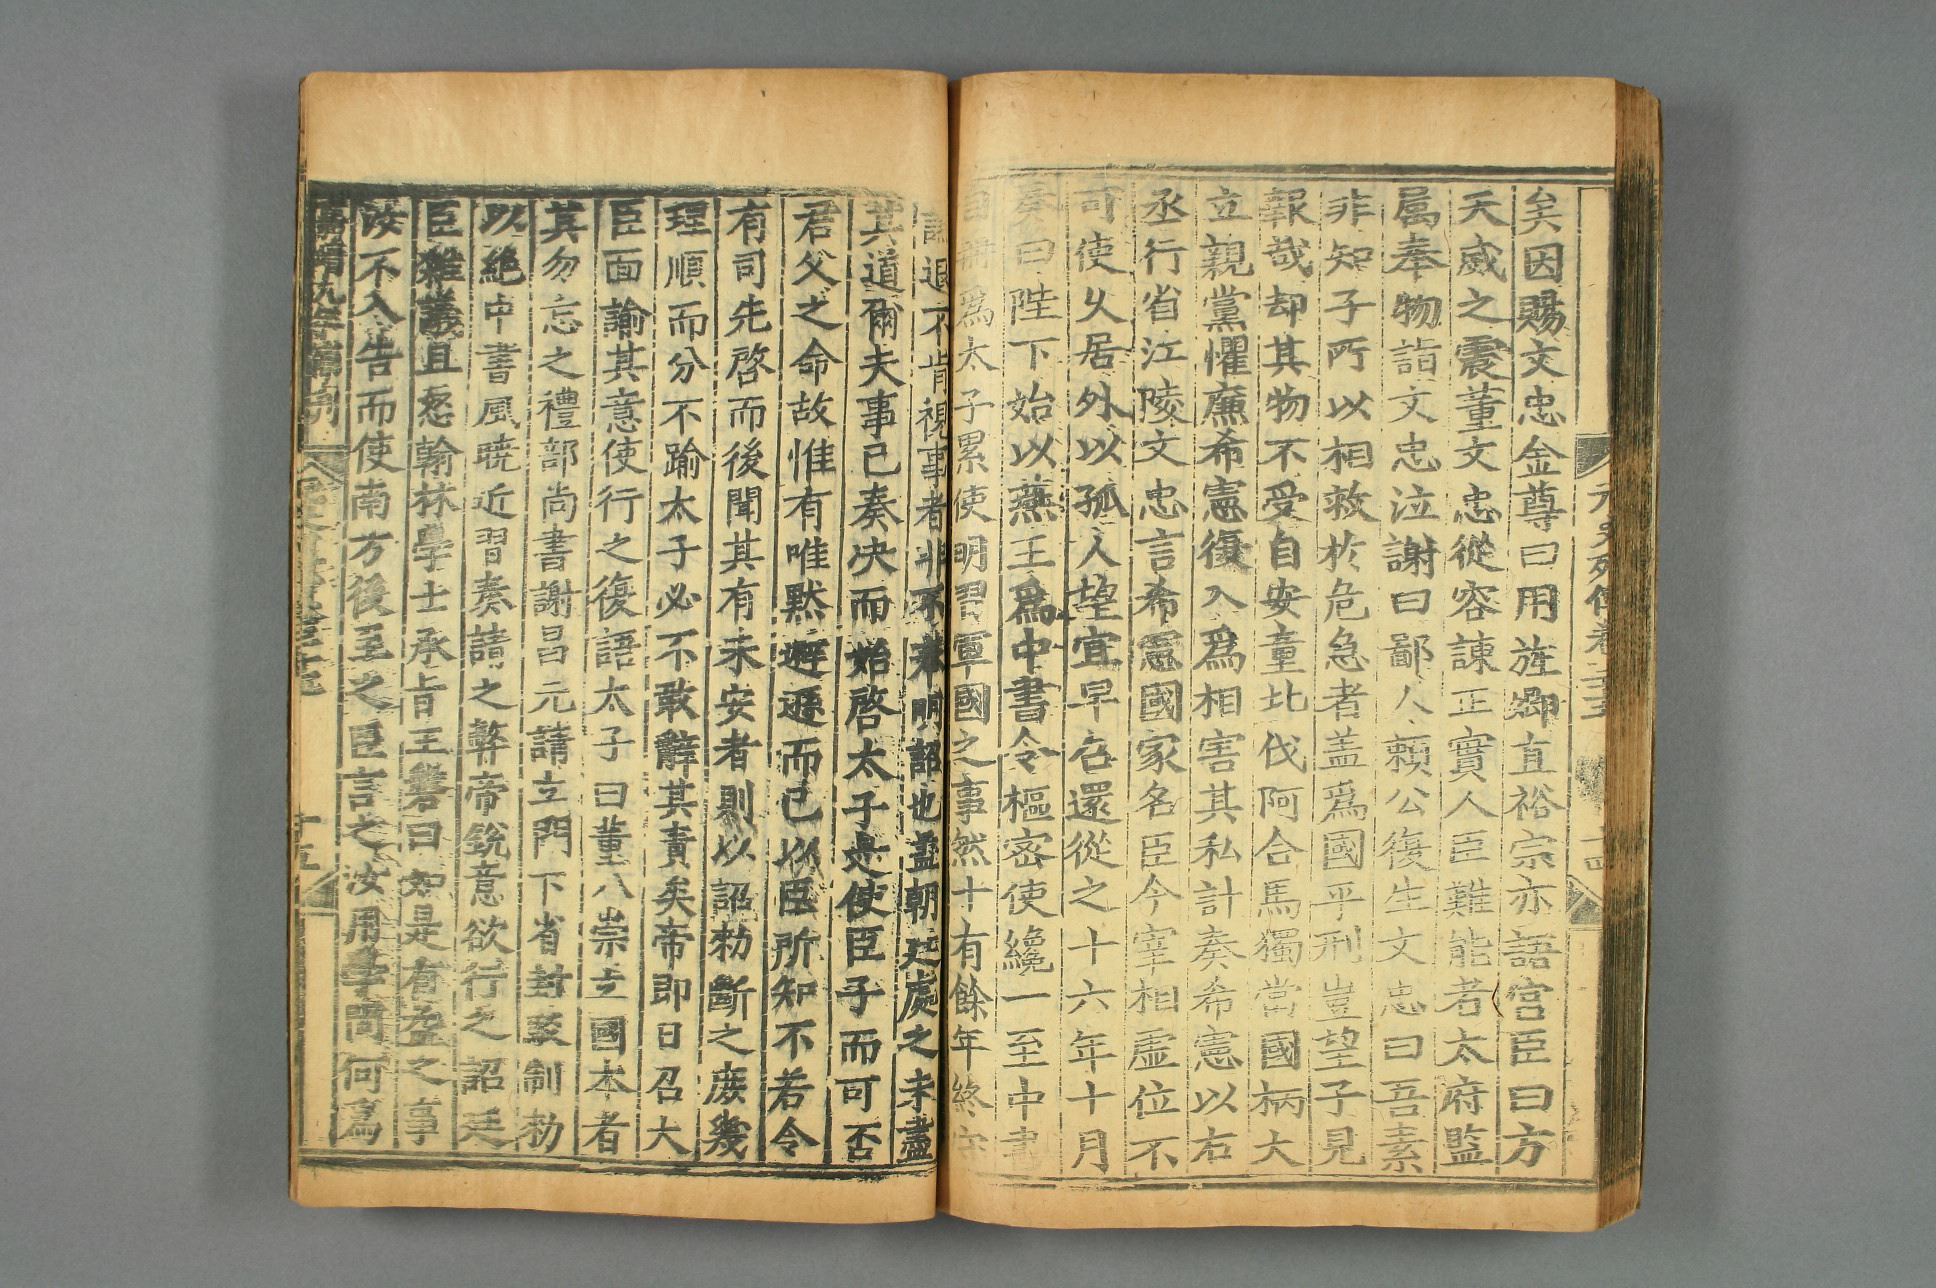 元史列傳卷三十五
十四
矣因賜文忠金尊曰用旌卿直裕宗亦語宮臣曰方
天威之震董文忠從容諫正實人臣難能者太府監
屬奉物詣文忠泣謝曰鄙人賴公復生文忠曰吾素
非知子所以相救於危急者盖爲國乎刑豈望子見
報哉却其物不受自安童北伐阿合馬獨當國柄大
立親黨懼廉希憲復入爲相害其私計奏希憲以右
丞行省江陵文忠言希憲國家名臣今宰相虛位不
可使乆居外以孤人望宜早召還從之十六年十月
奏曰陛下始以燕王爲中書令樞密使纔一至中書
自冊爲太子累使明習軍國之事然十有餘年終守
謙退不肯視事者非不奉明詔也盖朝廷處之未盡
其道爾夫事已奏决而始啓太子是使臣子而可否
君父之命故惟有唯默避遜而已以臣所知不若令
有司先啓而後聞其有未安者則以詔勑斷之庶幾
理順而分不踰太子必不敢辭其責矣帝即日召大
臣面諭其意使行之復語太子曰董八崇立國本者
其勿忘之禮部尚書謝昌元請立門下省封駁制勑
以絕中書風曉近習奏請之弊帝銳意欲行之詔廷
臣雜議且怒翰林學士承旨王磐曰如是有益之事
汝不入告而使南方後至之臣言之汝用學問何爲
嘉靖九年補刊
十五